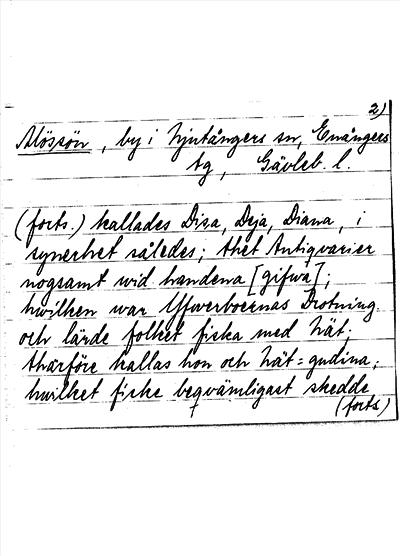 2)
Mössön, by i Njutångers sn, Enångers
tg, Gävleb. l.
(forts.) kallades Disa, Deja, Diana, i
synerhet således; thet Antiqvarier
nogsamt wid handena [gifwa];
hwilken war Yfwerboernas Drotning.
och lärde folket fiska med Nät.
thärföre kallas hon och Nät=gudina;
hwilket fiske beqvämligast skedde
(forts)